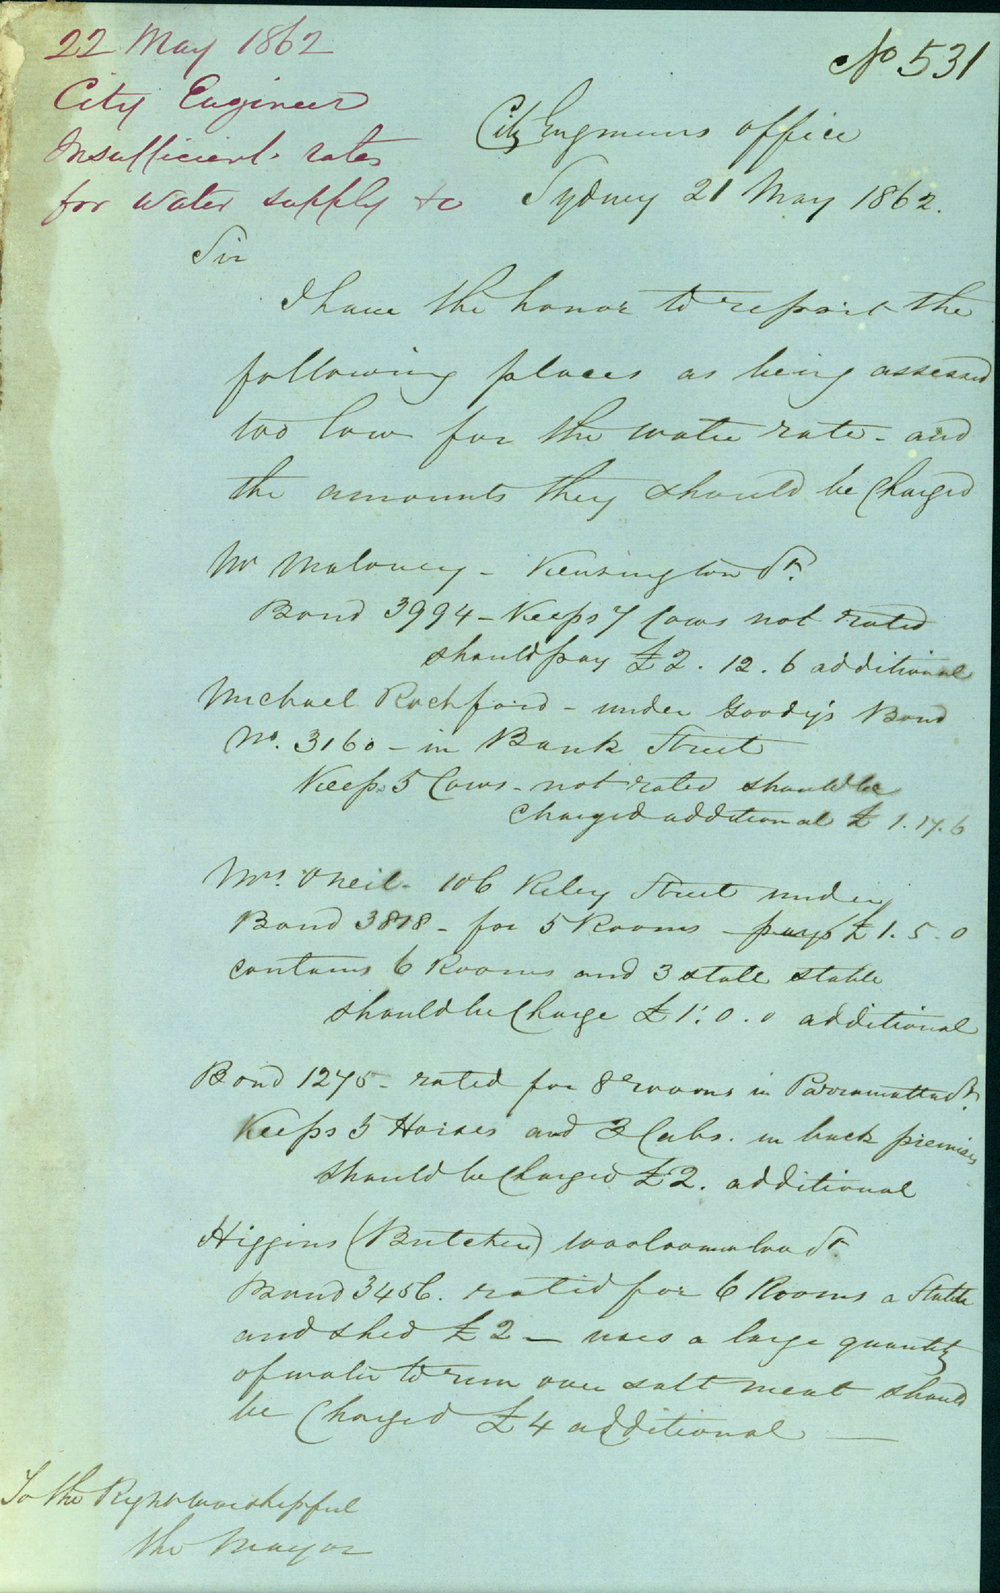 22 May 1862
City Engineer
Insufficient rates
for water supply &c
No 531
City Engineers office
Sydney 21 May 1862.
Sir
I have the honor to report the
following places as being assessed
too low for the water rate - and
the amounts they should be Charged
Mr Maloney - Kensington St.
Bond 3994 - Keeps 7 Cows not rated
should pay £2. 12. 6 additional
Michael Rochford - under Goody's Bond
No. 3160 - in Bank Street
Keeps 5 Cows - not rated should be
Charged additional £1.17.6
Mrs. ONeil - 106 Riley Street under
Bond 3818 - for 5 Rooms - pays £1. 5. 0
contains 6 Rooms and 3 stall stable
should be Charge £1. 0. 0 additional
Bond 1275 - rated for 8 rooms in Parramatta St.
Keeps 5 Horses and 3 Cabs. in back premises
should be Charged £2. additional
Higgins (Butcher) Woolloomooloo St.
Bond 3456. rated for 6 Rooms a Stable
and shed £2 - uses a large quantity
of water to run over salt meat should
be Charged £4 additional —
To the Right Worshipful
the Mayor